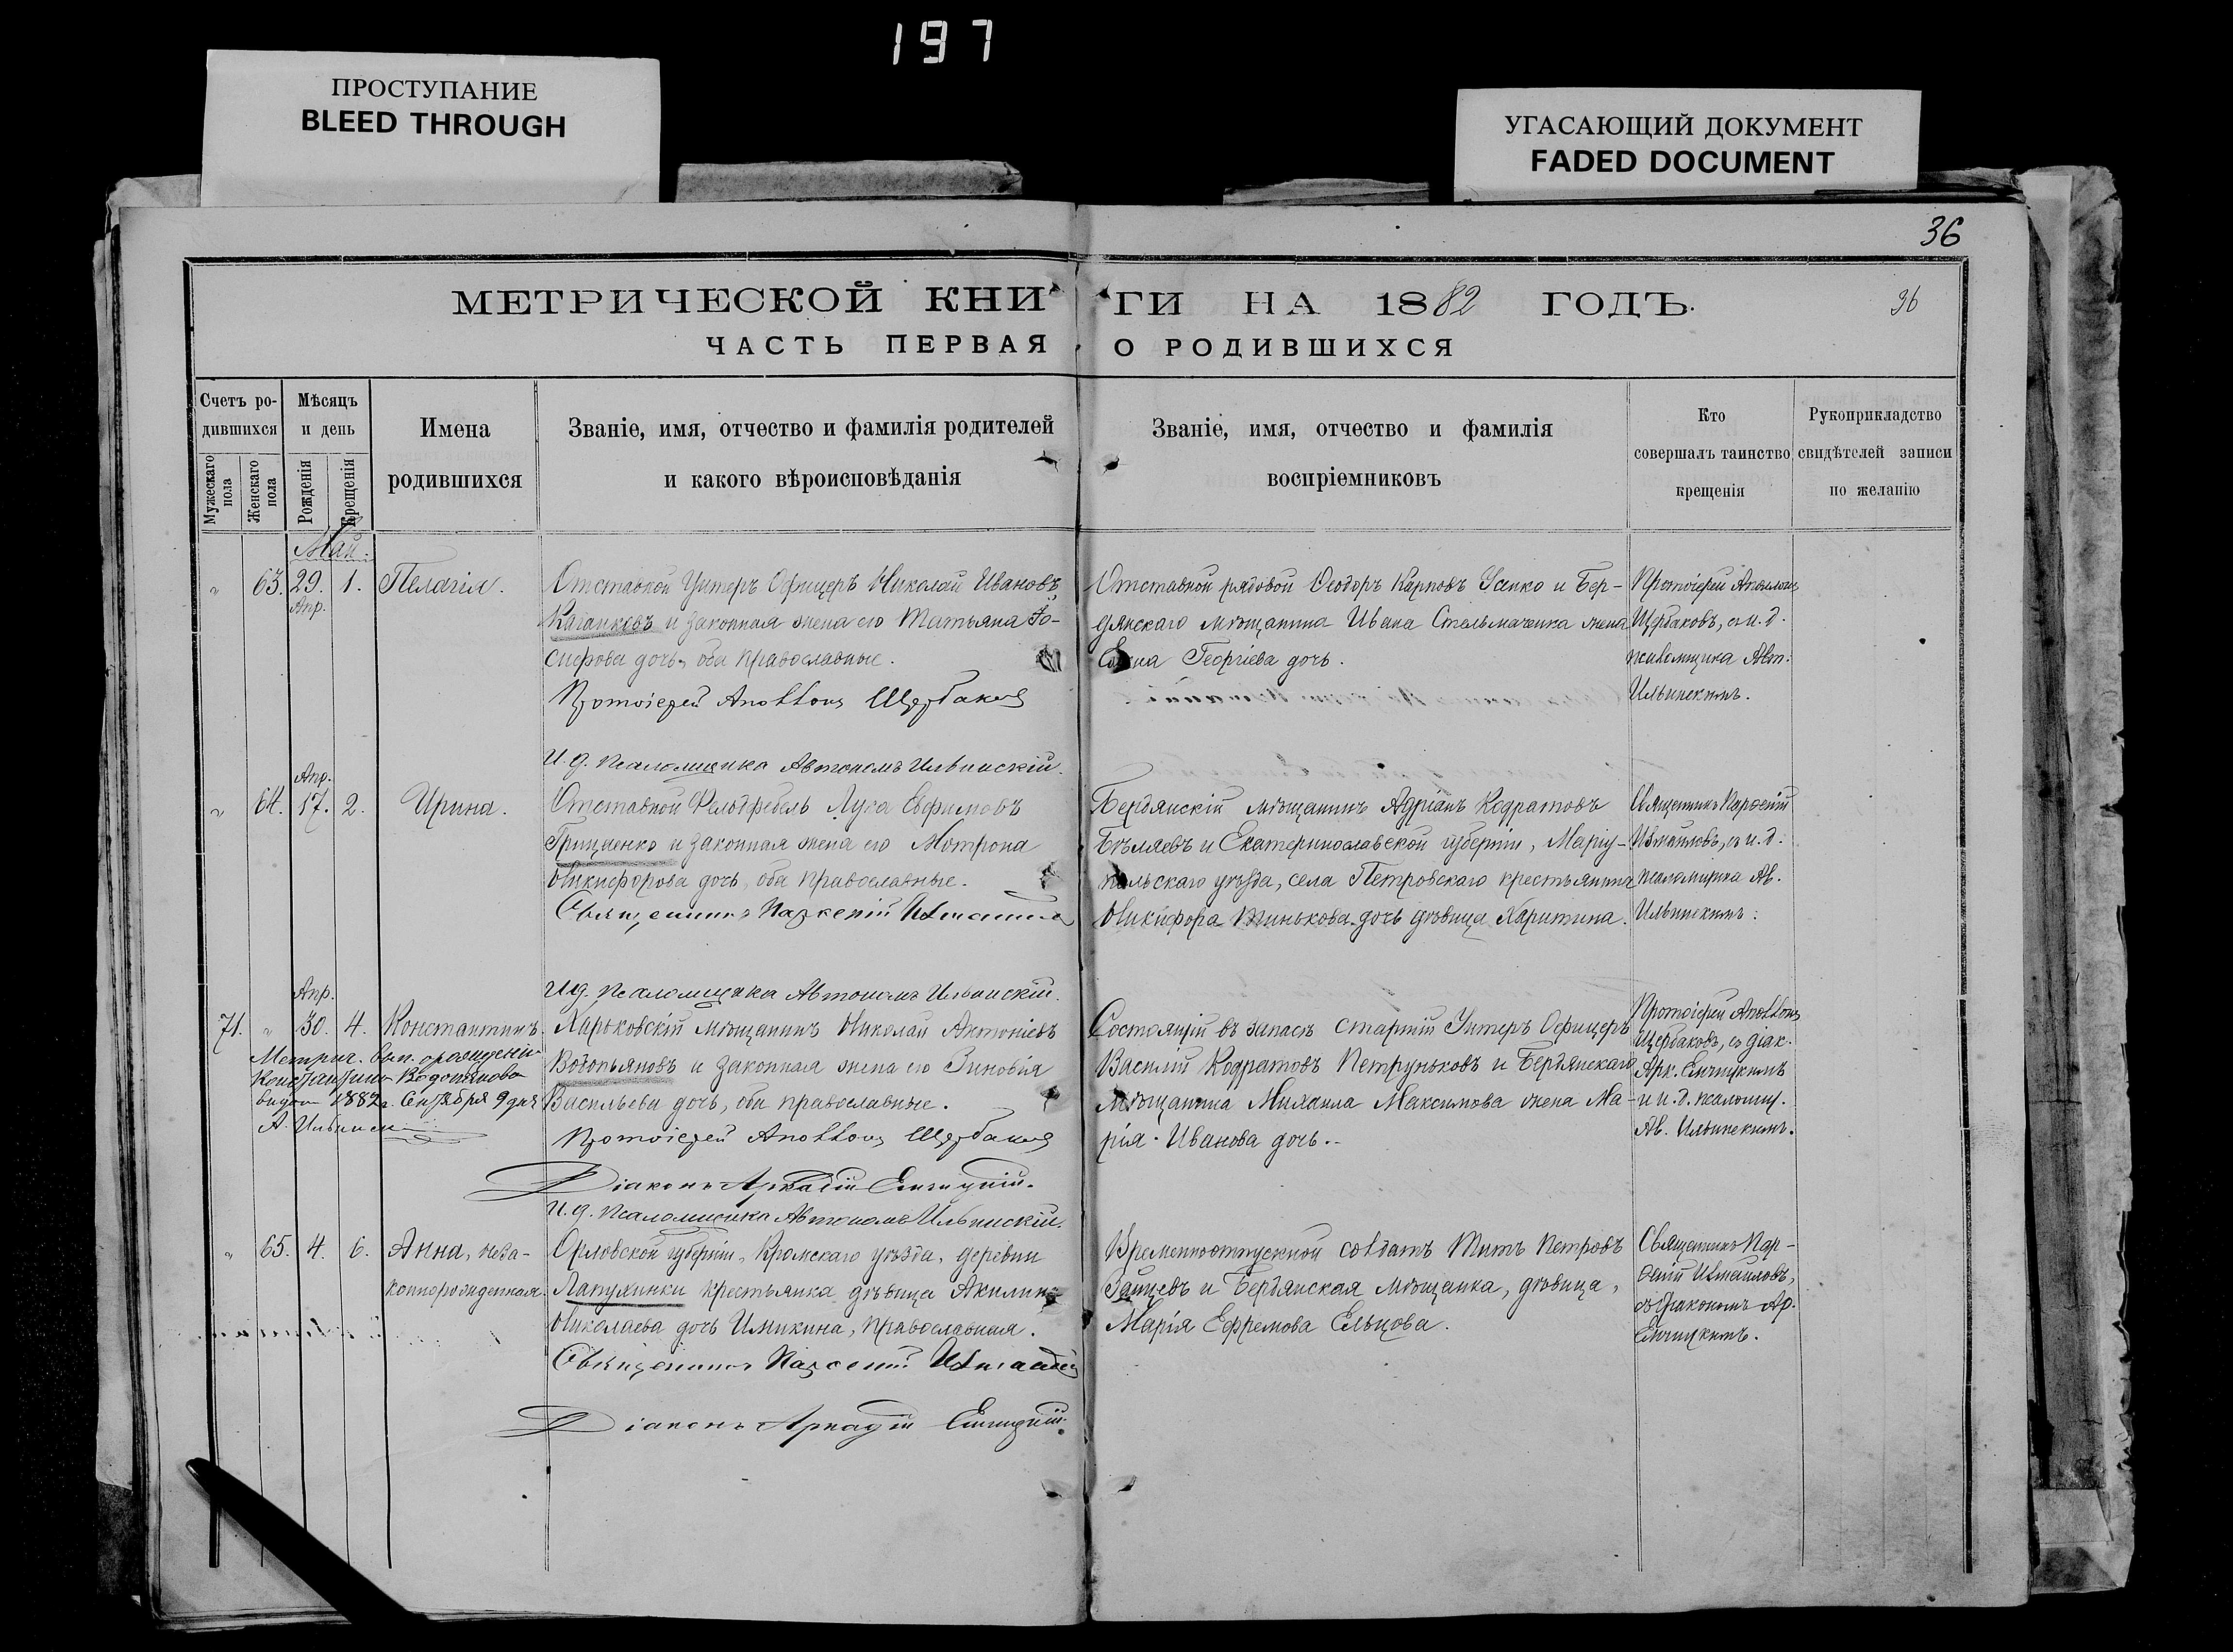 197
ПРОСТУПАНИЕ
BLEED THROUGH
УГАСАЮЩИЙ ДОКУМЕНТ
FADED DOCUMENT
36
МЕТРИЧЕСКОЙ КНИ
ГИ НА 1882 ГОДЪ.
36
ЧАСТЬ ПЕРВАЯ
О РОДИВШИХСЯ
Счетъ ро-
дившихся
Мужескаго
пола
Женскаго
пола
Мѣсяцъ
и день
Рожденія
Крещенія
Имена
родившихся
Званіе, имя, отчество и фамилія родителей
и какого вѣроисповѣданія
Званіе, имя, отчество и фамилія
воспріемниковъ
Кто
совершалъ таинство
крещенія
Рукоприкладство
свидѣтелей записи
по желанію
Май.
„ 63. 29. 1. Пелагія.
Апр.
Отставной Унтеръ Офицеръ Николай Ивановъ
и законная жена его Татьяна Іо-
сифова дочь, оба православные.
Протоіерей Аполлонъ Щербаковъ
И.д. псаломщика Автономъ Ильинскій.
Отставной рядовой Ѳеодоръ Карповъ Усенко и Бер-
дянскаго мѣщанина Ивана Стельмаченка жена
Георгіева дочь.
Протоіерей Аполлонъ
Щербаковъ, съ и.д.
псаломщика Авт.
Ильинскимъ.
Апр.
„ 64. 17. 2. Ирина.
Отставной Фельдфебель Лука Евфимовъ
Гриценко и законная жена его Мотрона
Никифорова дочь, оба православные.
Священникъ Парѳеній Измаиловъ
И.д. псаломщика Автономъ Ильинскій.
Бердянскій мѣщанинъ Адріанъ Кодратовъ
Бѣляевъ и Екатеринославской губерніи, Маріу-
польскаго уѣзда, села Петровскаго крестьянина
Никифора Минькова дочь дѣвица Харитина.
Священникъ Парѳеній
Измаиловъ, съ и.д.
псаломщика Ав.
Ильинскимъ.
Апр.
71. „ 30. 4. Константинъ.
Метрич. вып. о рожденіи
Константина Водопьянова
выдана 1882 г. Сентября 9 дня
А. Ильинскій
Харьковскій мѣщанинъ Николай Антоніевъ
Водопьяновъ и законная жена его Зиновія
Васильева дочь, оба православные.
Протоіерей Аполлонъ Щербаковъ
Діаконъ Аркадій
И.д. псаломщика Автономъ Ильинскій.
Состоящій въ запасѣ старшій Унтеръ Офицеръ
Василій Кодратовъ Петруньковъ и Бердянскаго
мѣщанина Михаила Максимова жена Ма-
рія Иванова дочь.
Протоіерей Аполлонъ
Щербаковъ, съ діак.
Арк.
и и.д. псаломщ.
Ав. Ильинскимъ.
„ 65. 4. 6. Анна, неза-
коннорожденная.
Орловской губерніи, Кромскаго уѣзда, деревни
Лапухинки крестьянка дѣвица Акилина
Николаева дочь православная.
Священникъ Парѳеній Измаиловъ
Діаконъ Аркадій
Временноотпускной солдатъ Титъ Петровъ
Зайцевъ и Бердянская мѣщанка, дѣвица,
Марія Ефремова Ельцова.
Священникъ Пар-
ѳеній Измаиловъ,
съ Діакономъ Ар.